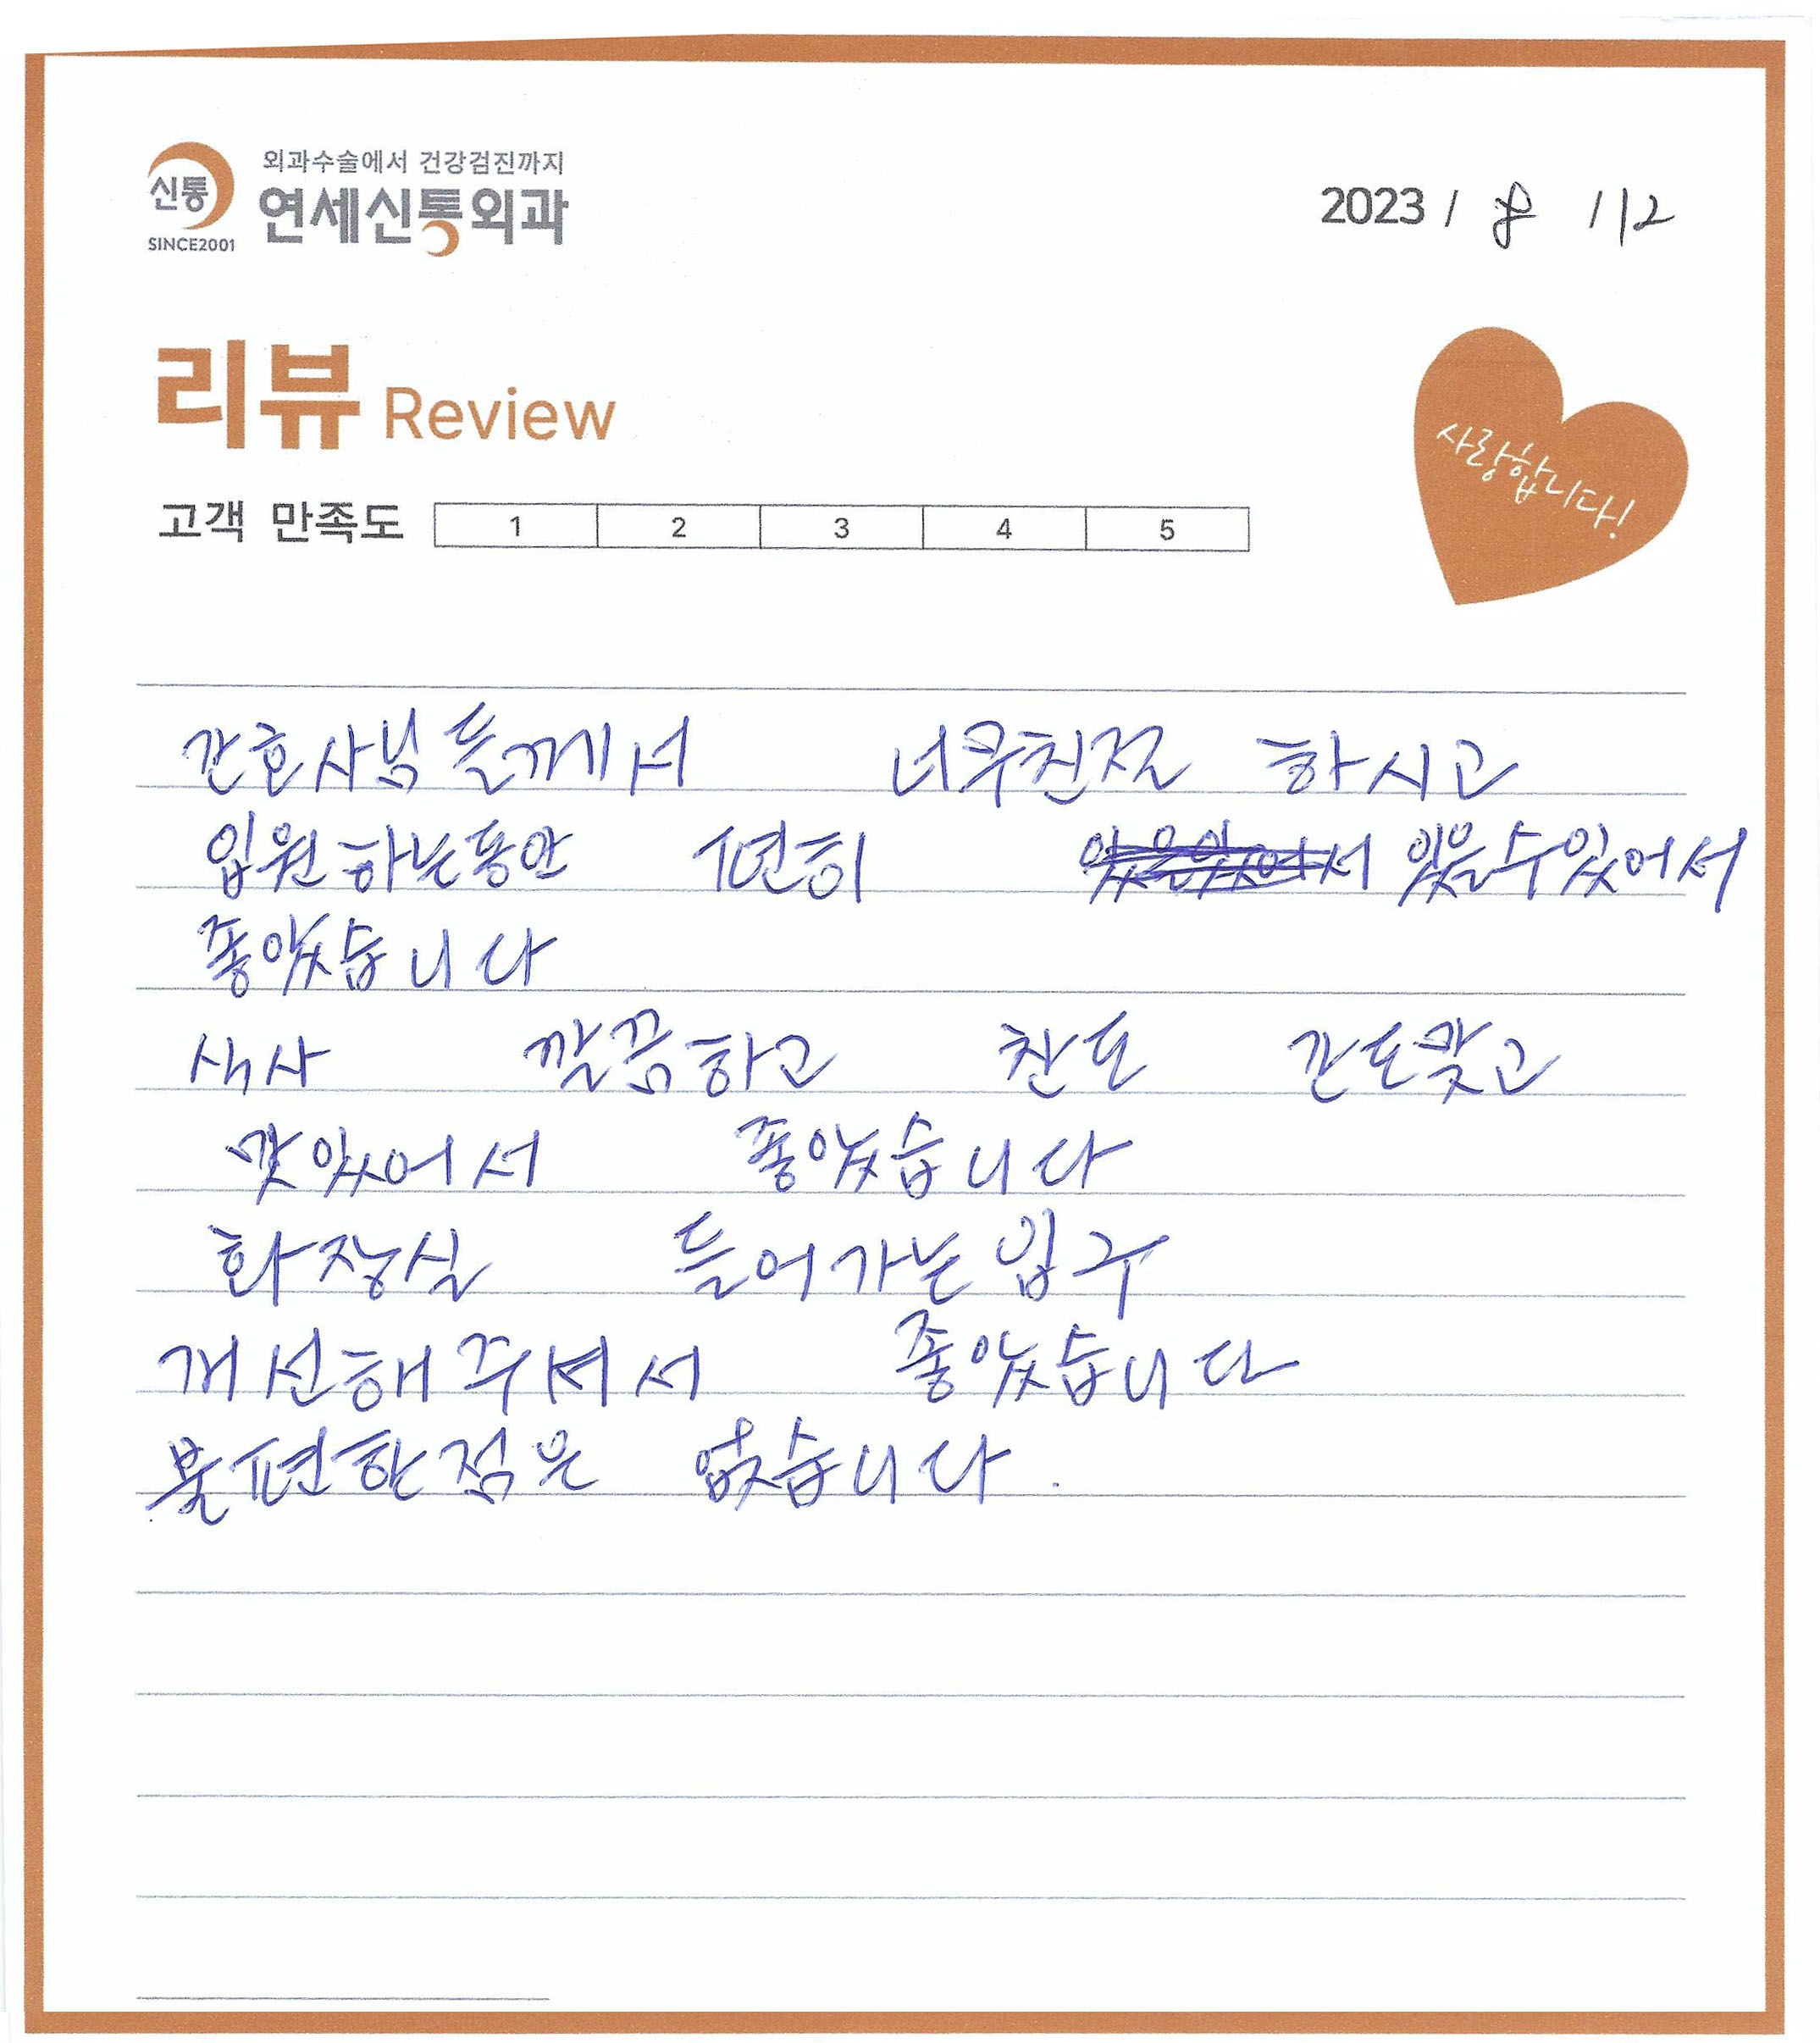 신통
SINCE2001
외과수술에서 건강검진까지
연세신통외과
2023 / 8 / 12
리뷰 Review
사랑합니다!
고객 만족도 1 2 3 4 5
간호사님들께서 너무친절 하시고
입원하는동안 편히 있을수있어서
좋았습니다
식사 깔끔하고 찬도 간도맞고
맛있어서 좋았습니다
화장실 들어가는입구
개선해주셔서 좋았습니다
불편한점은 없습니다.